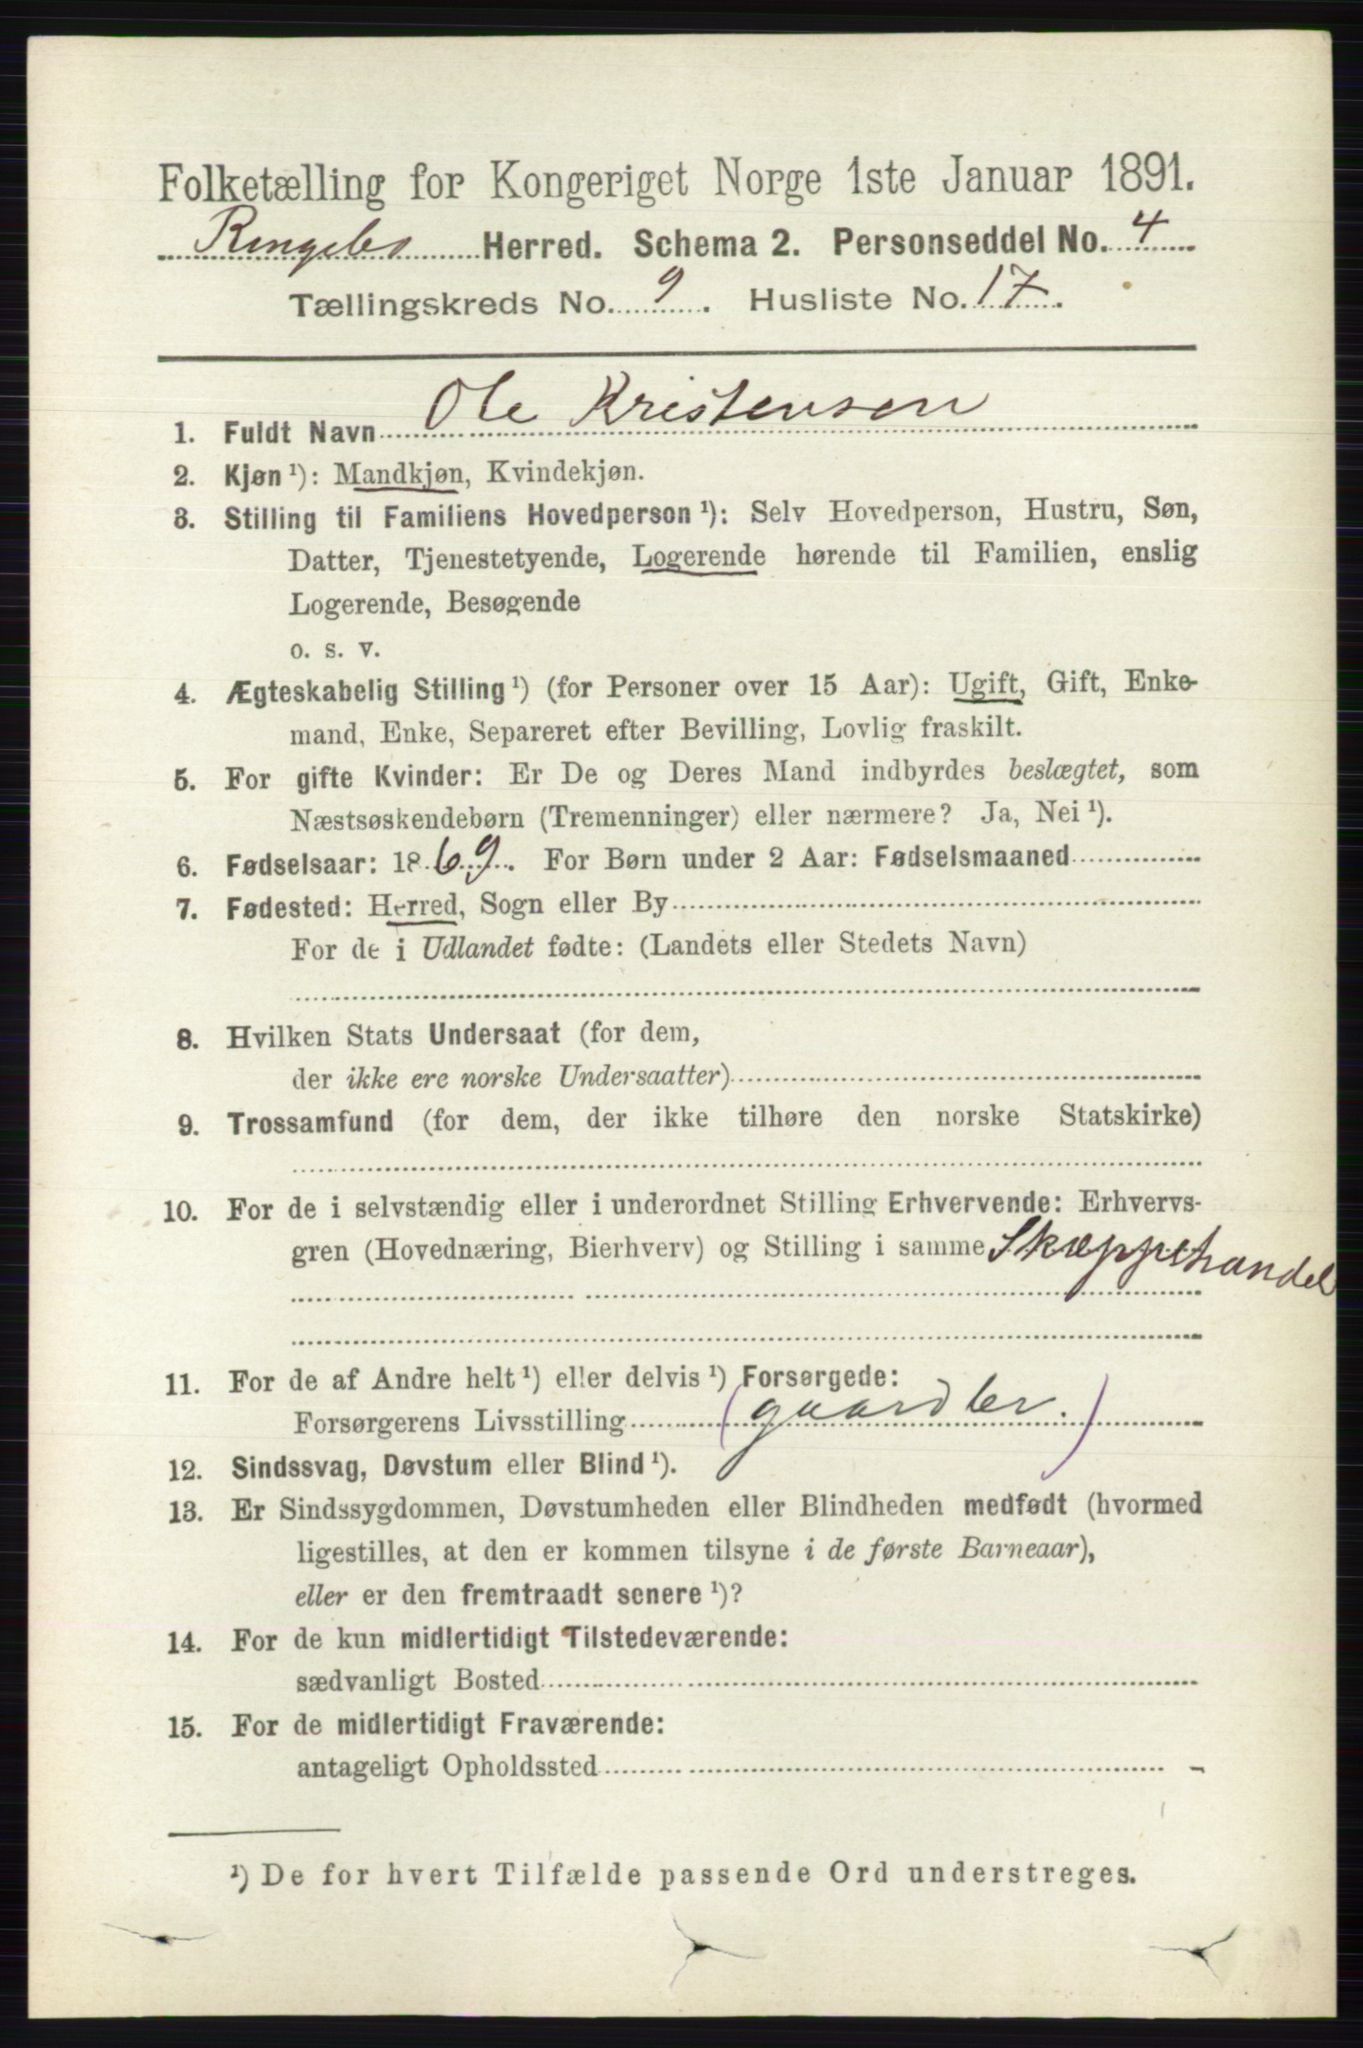 Folketælling for Kongeriget Norge 1ste Januar 1891.
Ringebu Herred. Schema 2. Personseddel No. 4
Tællingskreds No. 9. Husliste No. 17.
1. Fuldt Navn Ole Kristensen
2. Kjøn ¹): Mandkjøn, Kvindekjøn.
3. Stilling til Familiens Hovedperson ¹): Selv Hovedperson, Hustru, Søn,
Datter, Tjenestetyende, Logerende hørende til Familien, enslig
Logerende, Besøgende
o. s. v.
4. Ægteskabelig Stilling ¹) (for Personer over 15 Aar): Ugift, Gift, Enke-
mand, Enke, Separeret efter Bevilling, Lovlig fraskilt.
5. For gifte Kvinder: Er De og Deres Mand indbyrdes beslægtet, som
Næstsøskendebørn (Tremenninger) eller nærmere? Ja, Nei ¹).
6. Fødselsaar: 1869. For Børn under 2 Aar: Fødselsmaaned
7. Fødested: Herred, Sogn eller By
For de i Udlandet fødte: (Landets eller Stedets Navn)
8. Hvilken Stats Undersaat (for dem,
der ikke ere norske Undersaatter)
9. Trossamfund (for dem, der ikke tilhøre den norske Statskirke)
10. For de i selvstændig eller i underordnet Stilling Erhvervende: Erhvervs-
gren (Hovednæring, Bierhverv) og Stilling i samme Skræppehandel
11. For de af Andre helt ¹) eller delvis ¹) Forsørgede:
Forsørgerens Livsstilling (gaardbr.)
12. Sindssvag, Døvstum eller Blind ¹).
13. Er Sindssygdommen, Døvstumheden eller Blindheden medfødt (hvormed
ligestilles, at den er kommen tilsyne i de første Barneaar),
eller er den fremtraadt senere ¹)?
14. For de kun midlertidigt Tilstedeværende:
sædvanligt Bosted
15. For de midlertidigt Fraværende:
antageligt Opholdssted
¹) De for hvert Tilfælde passende Ord understreges.